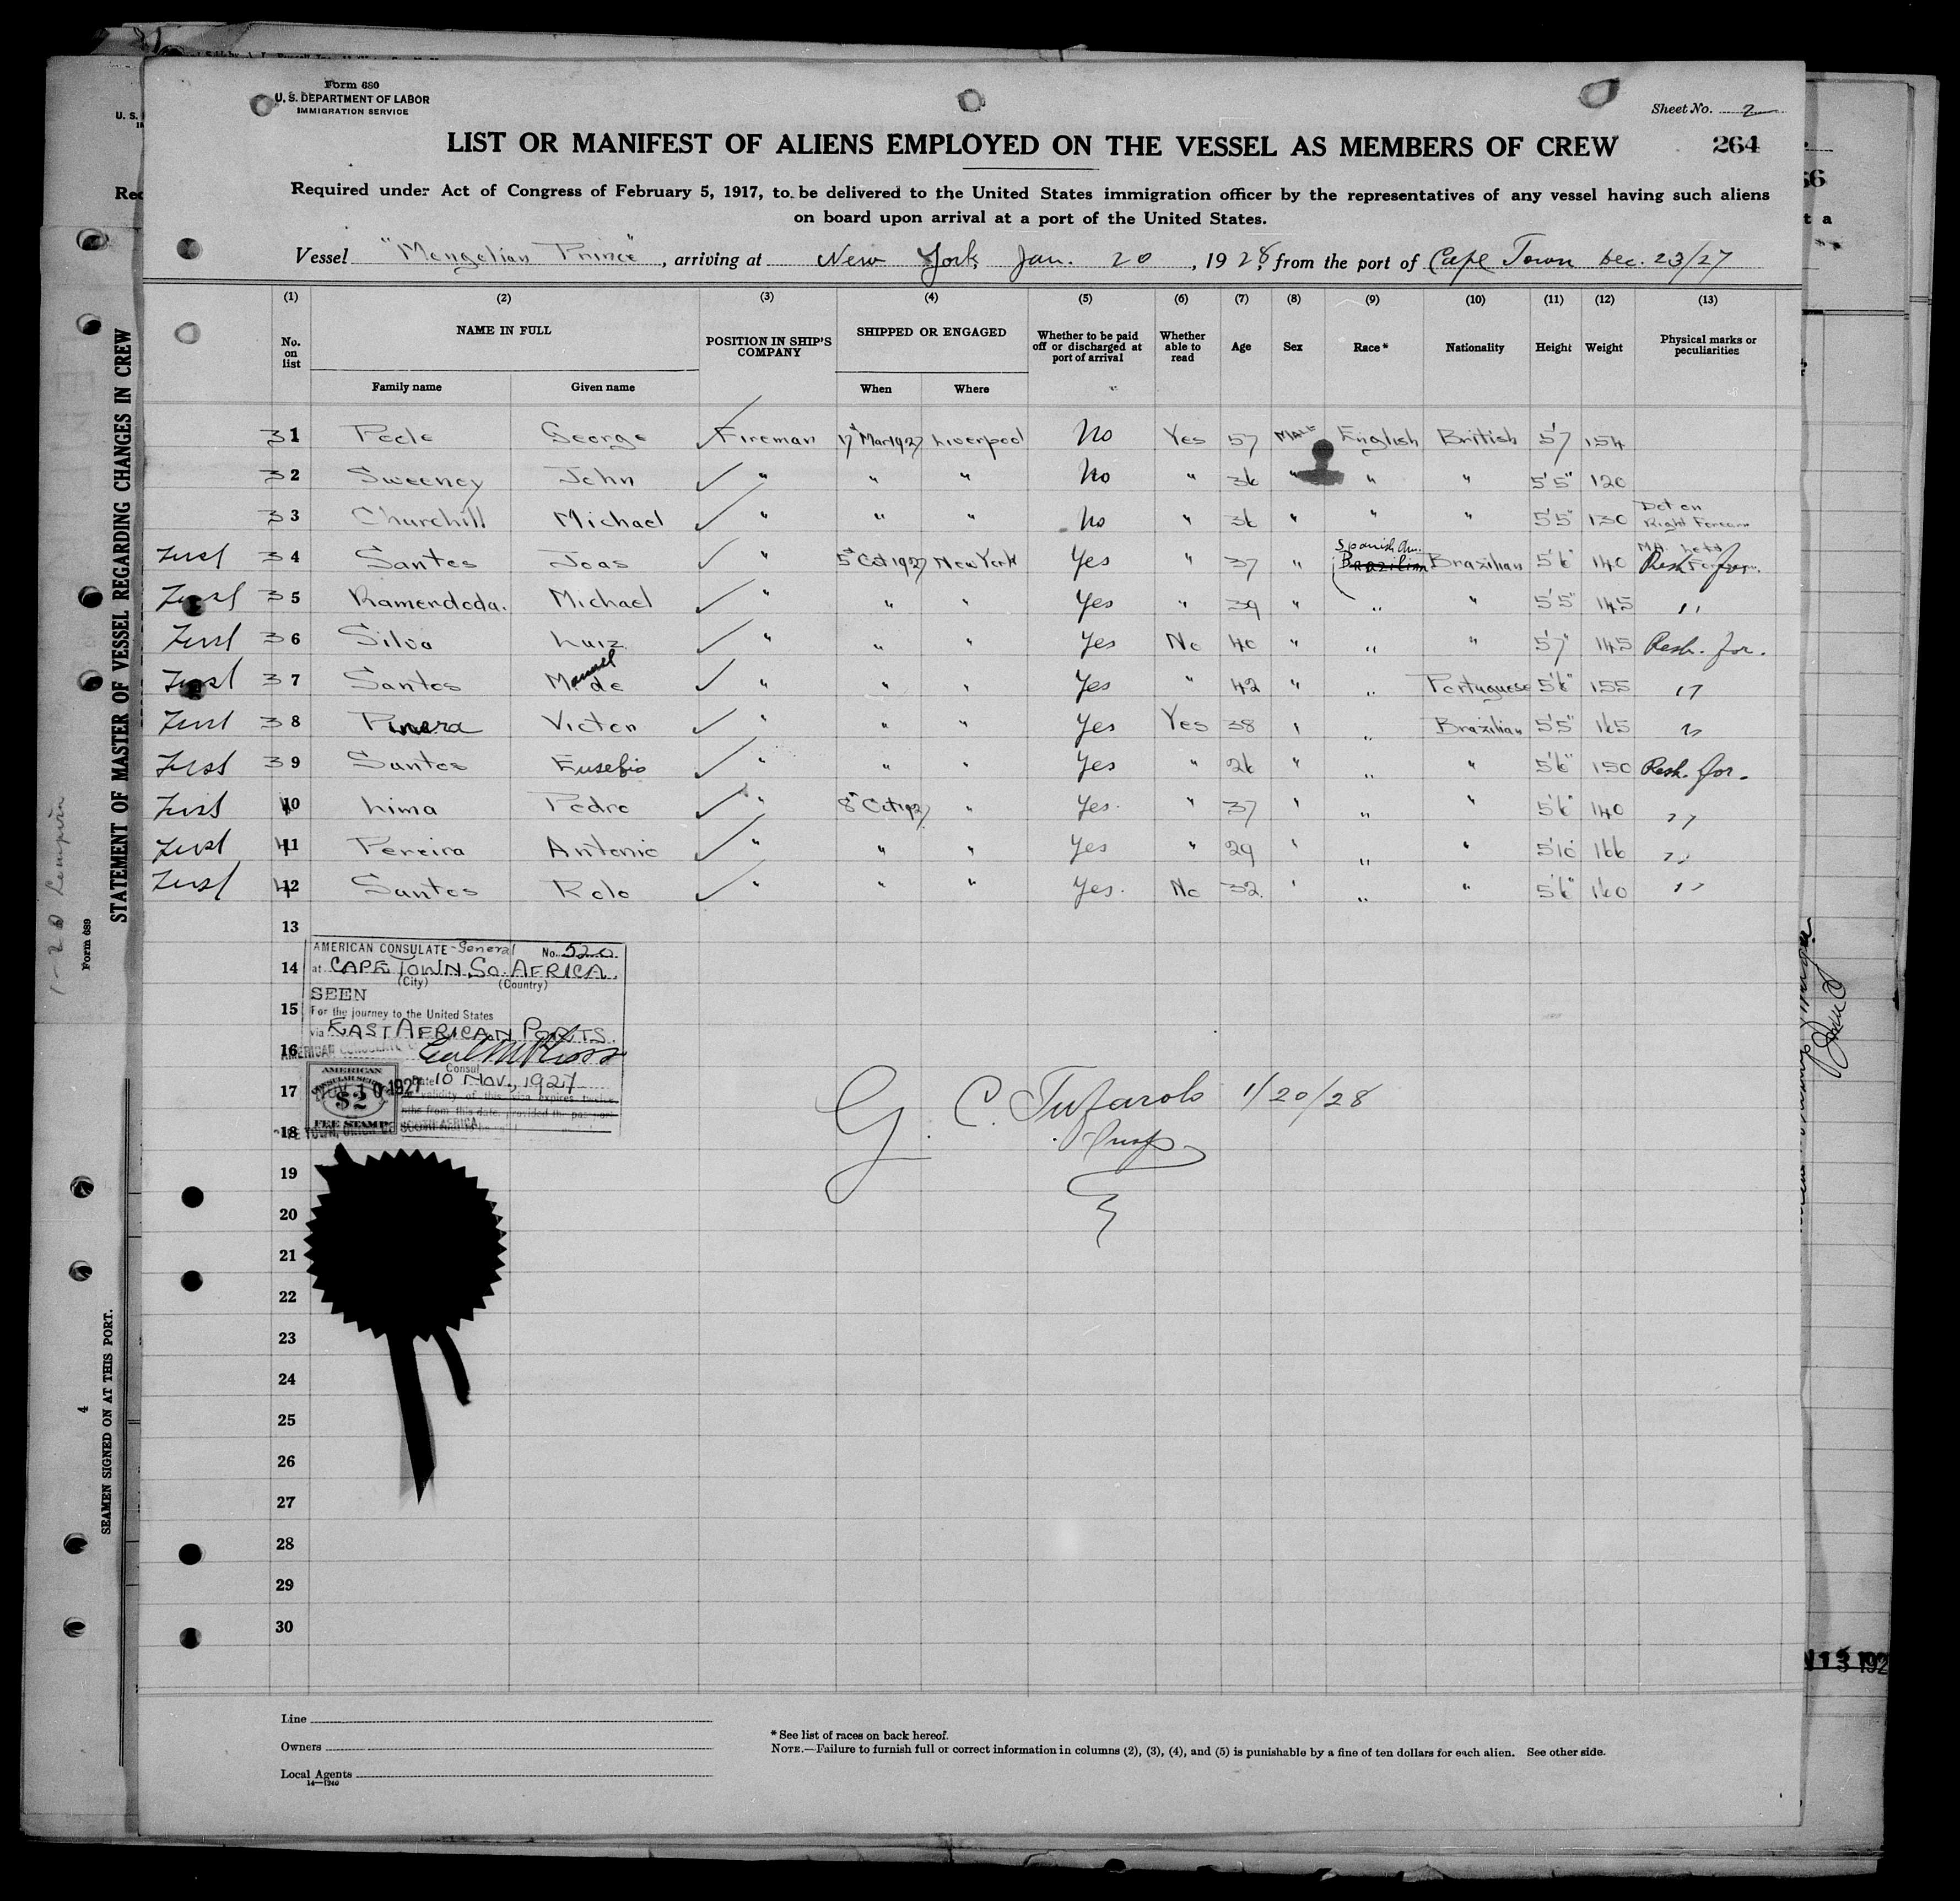 Form 680
U. S. DEPARTMENT OF LABOR
IMMIGRATION SERVICE
Sheet No. 2
LIST OR MANIFEST OF ALIENS EMPLOYED ON THE VESSEL AS MEMBERS OF CREW
264
Required under Act of Congress of February 5, 1917, to be delivered to the United States immigration officer by the representatives of any vessel having such aliens
on board upon arrival at a port of the United States.
Vessel "Mongolian Prince", arriving at New York Jan. 20, 1928, from the port of Cape Town Dec. 23/27
(1) (2) (3) (4) (5) (6) (7) (8) (9) (10) (11) (12) (13)
No. on list NAME IN FULL POSITION IN SHIP'S COMPANY SHIPPED OR ENGAGED Whether to be paid off or discharged at port of arrival Whether able to read Age Sex Race* Nationality Height Weight Physical marks or peculiarities
Family name Given name When Where
31 George Fireman 17 Mar 1927 Liverpool No Yes 57 Male English British 5'7 154
32 Sweeney John " " " No " 36 " " " 5'5" 120
33 Churchill Michael " " " No " 36 " " " 5'5" 130 Dot on Right Forearm
First 34 Santos Joas " 5 Oct 1927 New York Yes " 37 " Spanish Am. Brazilian Brazilian 5'6" 140
First 35 Michael " " " Yes " 39 " " " 5'5" 145 "
First 36 Silva Luiz " " " Yes No 40 " " " 5'7" 145
First 37 Santos Manuel de " " " Yes " 42 " " Portuguese 5'6" 155 "
First 38 Victor " " " Yes Yes 38 " " Brazilian 5'5" 165 "
First 39 Santos Eusebio " " " Yes " 26 " " " 5'6" 150
First 40 Lima Pedro " 8 Oct 1927 " Yes. " 37 " " " 5'6" 140 "
First 41 Pereira Antonio " " " Yes " 29 " " " 5'10 166 "
First 42 Santos Rolo " " " Yes. No 32 " " " 5'6" 160 "
13
14
15
16
17
18
19
20
21
22
23
24
25
26
27
28
29
30
AMERICAN CONSULATE-General No. 520
at CAPE TOWN SO. AFRICA.
(City) (Country)
SEEN
For the journey to the United States
via EAST AFRICAN PORTS.
Consul
Date 10 NOV., 1927
AMERICAN
CONSULAR SERVICE
NOV 10 1927
$2
FEE STAMP
G. C. Tufarolo 1/20/28
Insp
Line
Owners
Local Agents
14—1240
* See list of races on back hereof.
NOTE.—Failure to furnish full or correct information in columns (2), (3), (4), and (5) is punishable by a fine of ten dollars for each alien. See other side.
STATEMENT OF MASTER OF VESSEL REGARDING CHANGES IN CREW
Form 689
SEAMEN SIGNED ON AT THIS PORT.
4